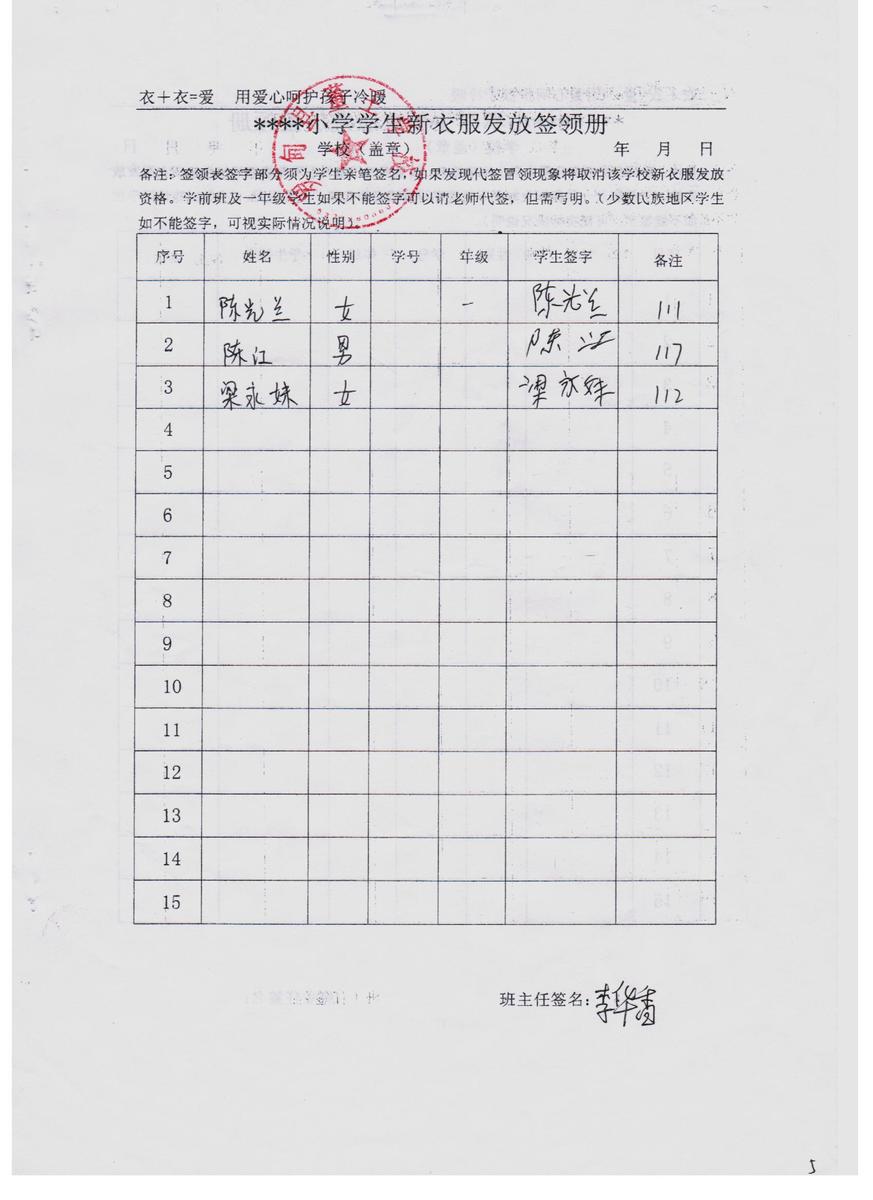 衣＋衣=爱 用爱心呵护孩子冷暖
****小学学生新衣服发放签领册
学校（盖章） 年 月 日
备注：签领表签字部分须为学生亲笔签名，如果发现代签冒领现象将取消该学校新衣服发放
资格。学前班及一年级学生如果不能签字可以请老师代签，但需写明。（少数民族地区学生
如不能签字，可视实际情况说明）
序号 姓名 性别 学号 年级 学生签字 备注
1 陈光兰 女 一 陈光兰 111
2 陈江 男 陈江 117
3 梁永妹 女 梁永妹 112
4
5
6
7
8
9
10
11
12
13
14
15
班主任签名：李华香
5